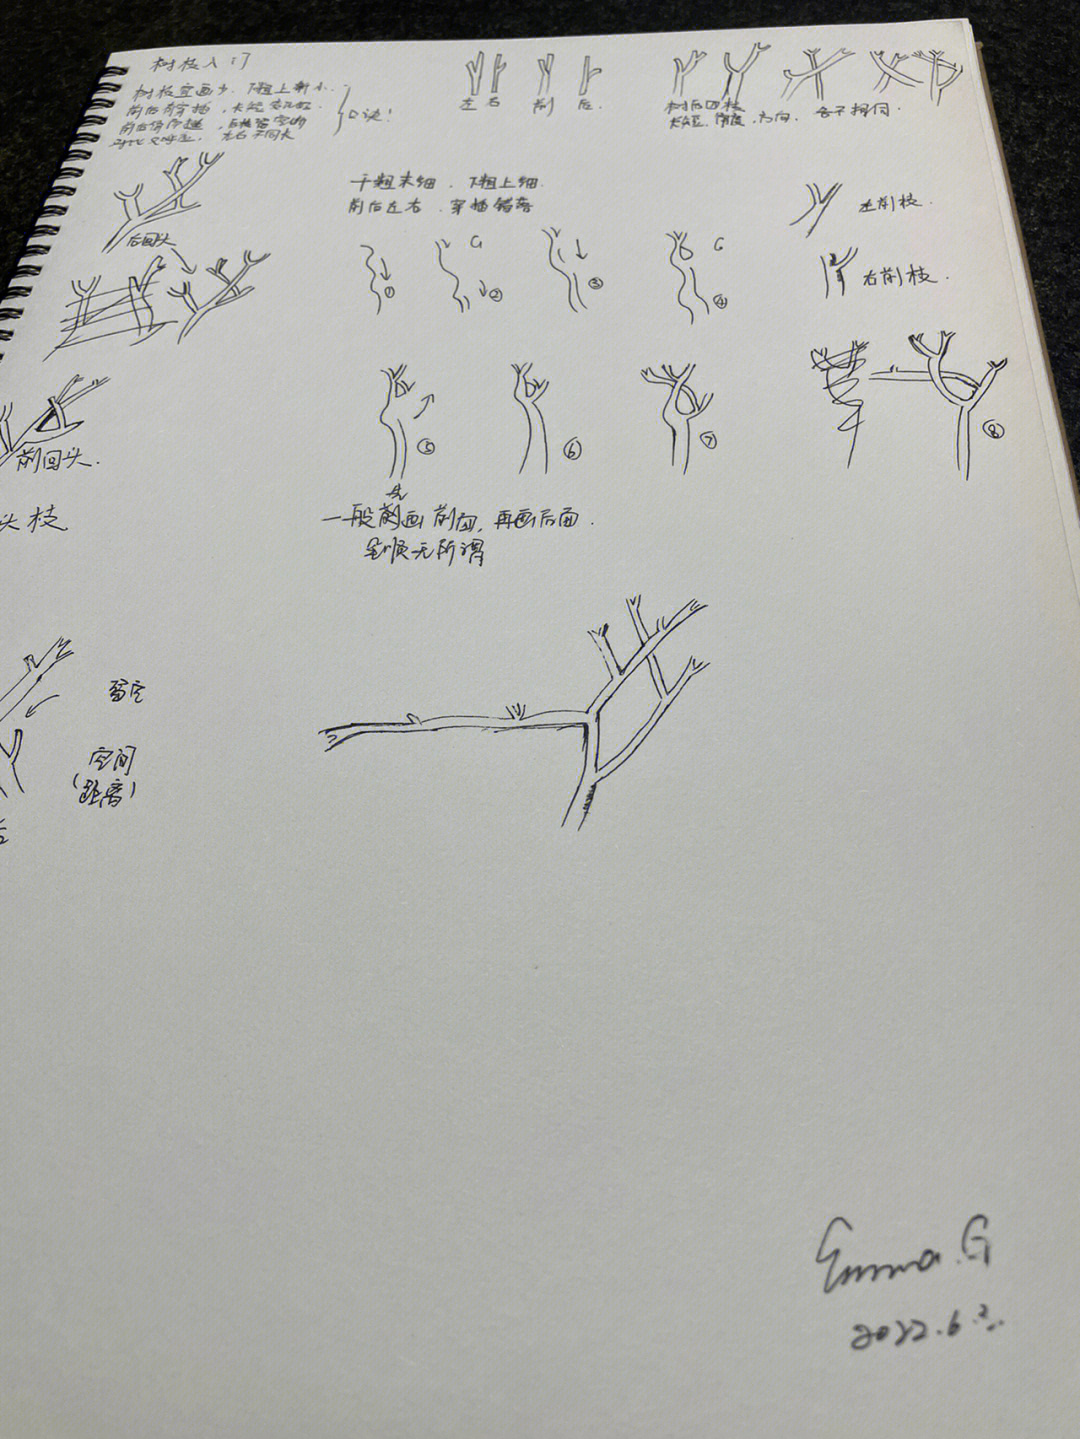 树枝入门
树枝宜画 下粗上渐小.
前后穿插
前后 留空的
左右不同长
口诀!
左 右 前 后.
树后四枝
长短.角度.方向.各不相同.
干粗末细.下粗上细.
前后左右.穿插错落
左前枝.
后回头
右前枝.
G
G
① ② ③ ④
⑤ ⑥ ⑦ ⑧
前回头.
头枝
先
一般前画前面,再画后面.
笔顺无所谓
留空
空间
(距离)
后
Emma.G
2022.6.